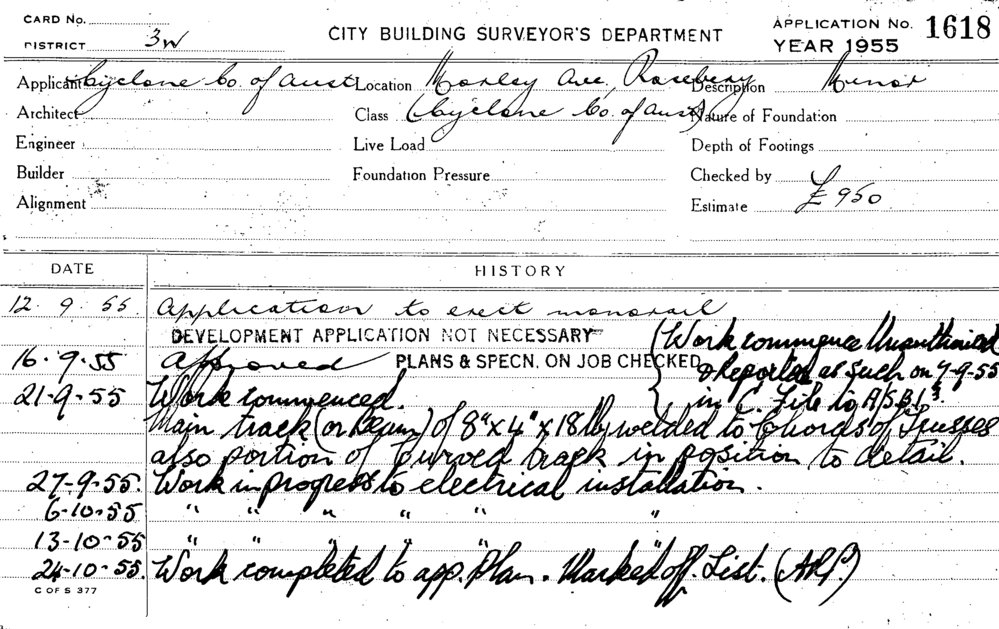 CARD No.
DISTRICT 3W
CITY BUILDING SURVEYOR'S DEPARTMENT
APPLICATION No. 1618
YEAR 1955
Applicant Cyclone Co. of Aust Location Morley Ave, Rosebery Description Minor
Architect Class (Cyclone Co. of Aust) Nature of Foundation
Engineer Live Load Depth of Footings
Builder Foundation Pressure Checked by
Alignment Estimate £950
DATE HISTORY
12. 9. 55 Application to erect monorail
DEVELOPMENT APPLICATION NOT NECESSARY
16-9-55 Approved PLANS & SPECN. ON JOB CHECKED
(Work commence Unauthorised
& Reported as such on 7-9-55
in C. File to A/S.B.I.
21-9-55 Work commenced.
Main track (or Beam) of 8"x4"x18lb welded to Chords of Trusses
also portion of Curved track in position to detail.
27-9-55. Work in progress to electrical installation.
6-10-55 " " " " " "
13-10-55 " " " " " "
24-10-55. Work completed to app. Plan. Marked off. List. (ARP.)
C OF S 377